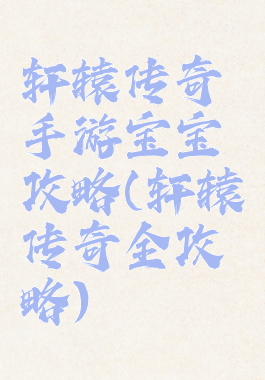 轩辕传奇
手游宝宝
攻略(轩辕
传奇全攻
略)